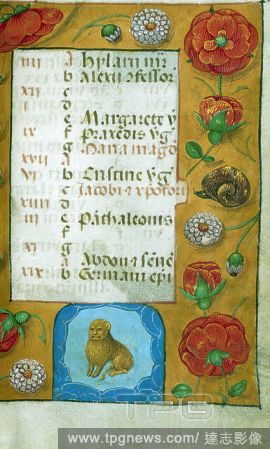 iiii A hylarii mr
b Alexii cōfessor
xii c
i d
e Margarete v̄
ix f Praxedis v̄g
g Maria magd
xvii A
vi b Cristine v̄g
c Jacobi ⁊ xpofori
xiiii d
iii e Pāthaleonis
f
xi g
A Abdon ⁊ senē
xix b Germani epī
TPG
www.tpgnews.com/ 達志影像